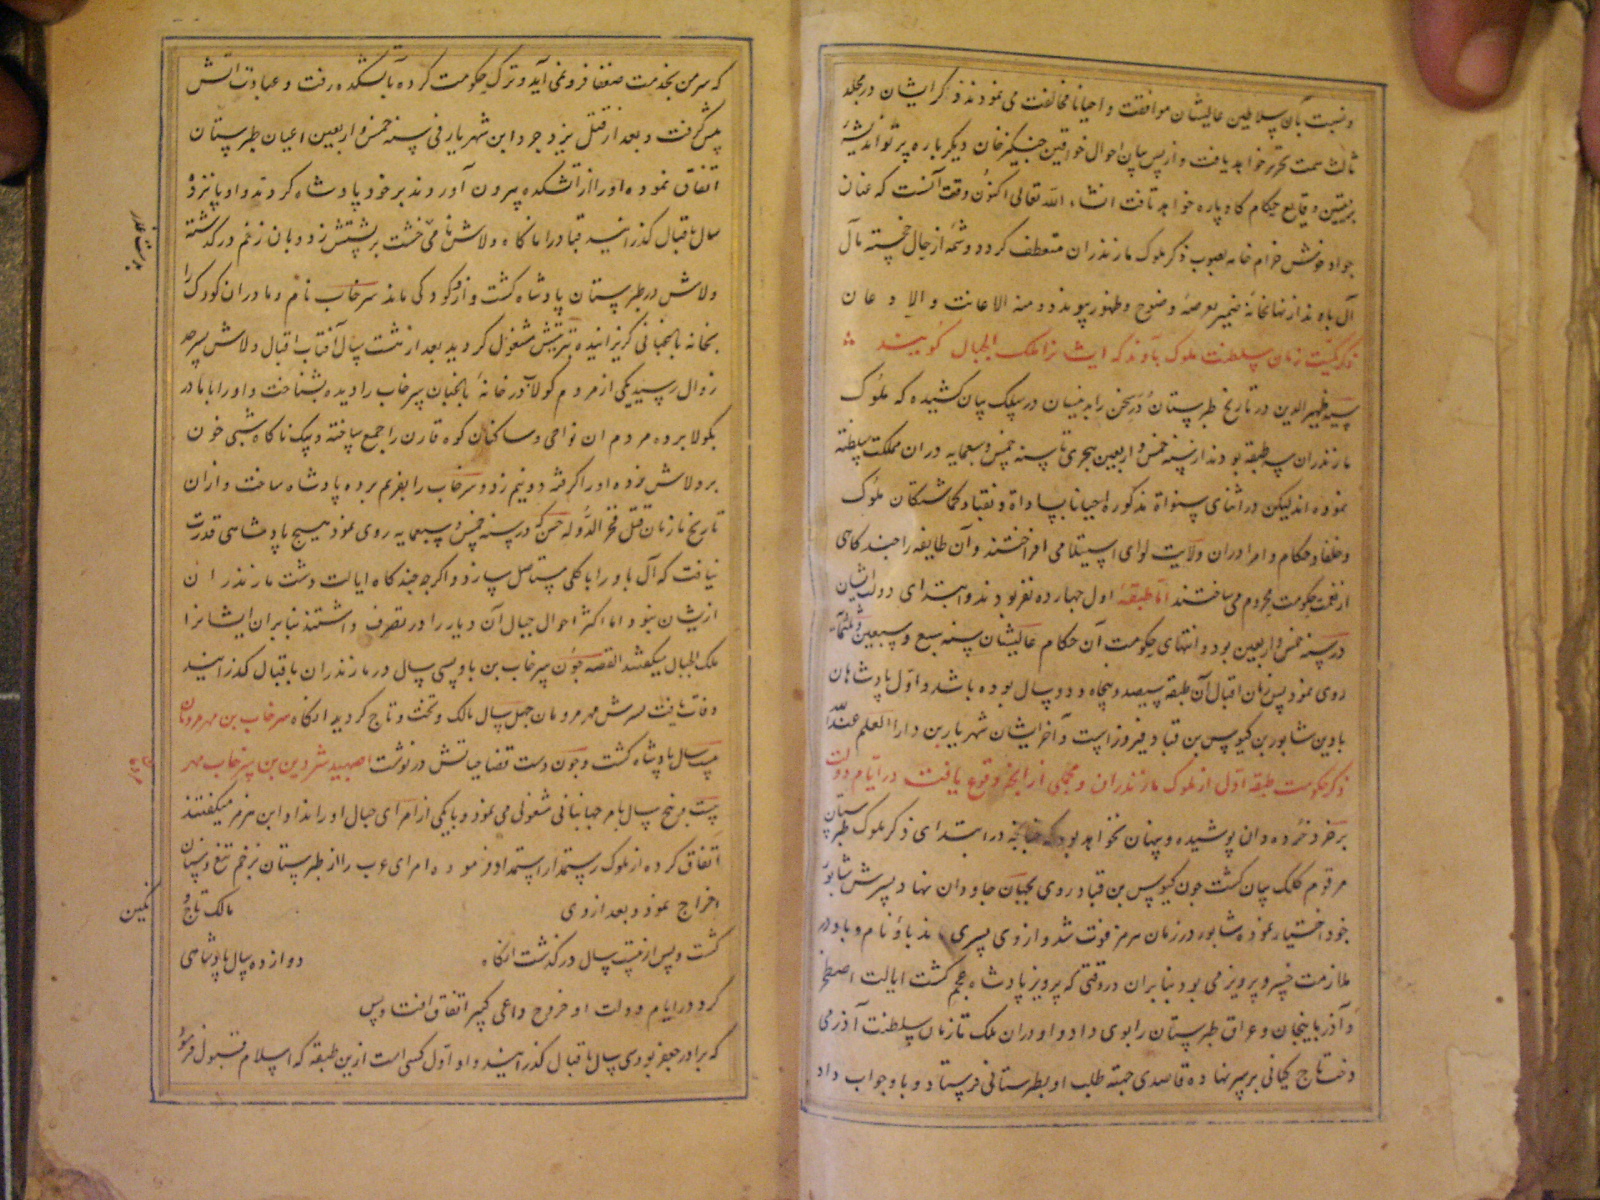 و نسبت بآن سلاطین عالیشان موافقت و احیانا مخالفت می نمودند ذکر ایشان در مجلد
ثالث سمت تحریر خواهد یافت و از پس بیان احوال خواقین چنگیزخان دیگر باره پرتو اندیشه
بر تبیین وقایع حکام کاوباره خواهد تافت انشاء الله تعالی اکنون وقت آنست که عنان
جواد خوش خرام خامه بصوب ذکر ملوک مازندران منعطف کردد و شمه از حال خجسته مآل
آل باوند از نهانخانه ضمیر بعرصه وضوح و ظهور پیوندد و منه الاعانت و
ذکر کمیت ازمان سلطنت ملوک باوند که ایشانرا ملک الجبال کویند
سید ظهیر الدین در تاریخ طبرستان در سخن را بدینسان در سلک بیان کشیده که ملوک
مازندران سه طبقه بودند از سنه خمس و اربعین هجری تا سنه خمسین و سبعمایه در ان مملکت سلطنت
نموده اند لیکن در اثنای سنوات مذکوره احیانا سادات و نقبا و کماشتکان ملوک
و خلفا و حکام و امرا در ان ولایت لوای استیلا می افراختند و آن طایفه را چند کاهی
از نعمت حکومت محروم می ساختند اما طبقه اول چهارده نفر بودند و ابتدای دولت ایشان
در سنه خمس و اربعین بود و انتهای حکومت آن حکام عالیشان سنه سبع و تسعین و ثلثمائه
روی نمود پس زمان اقبال آن طبقه سیصد و پنجاه و دو سال بوده باشد و اول پادشاهان
باو بن شابور بن کیوس بن قباد فیروز است و آخر ایشان شهریار بن دارا العلم عند الله
ذکر حکومت طبقه اول از ملوک مازندران و مجملی از آنچه وقوع یافت در ایام دولت
بر خرد خرده دان پوشیده و پنهان نخواهد بود که چنانچه در ابتدای ذکر ملوک طبرستان
مرقوم کلک بیان کشت چون کیوس بن قباد روی بجهان جاودان نهاد پسرش شابور
خود اختیار نموده شابور در زمان هرمز فوت شد و از وی پسری ماند باو نام و باو در
ملازمت خسرو پرویز می بود بنابران در وقتی که پرویز پادشاه عجم کشت ایالت اصطخر
و آذربایجان و عراق طبرستان را بوی داد و او در ان ملک تا زمان سلطنت آذرمی
دخت تاج کیانی بر سر نهاده قاصدی جهته طلب او بطبرستان فرستاد و باو جواب داد
که سر من بخدمت ضعفا فرو نمی آید و ترک حکومت کرده بآتشکده رفت و عبادت آتش
پیش گرفت و بعد از قتل یزدجرد ابن شهریار فی سنه خمس و اربعین اعیان طبرستان
اتفاق نموده او را از آتشکده بیرون آوردند بر خود پادشاه کردند و او پانزده
سال باقبال کذرانید ولاش نامی خشت بر پشتش زد و بان زخم در کذشته
ولاش در طبرستان پادشاه کشت و از و کودکی ماند سرخاب نام و مادر ان کودک را
بخانه باغبانی کریزانیده بتربیتش مشغول کردید بعد از هشت سال آفتاب اقبال ولاش بسرحد
زوال رسید یکی از مردم کولا در خانه باغبان سرخاب را دیده بشناخت و او را با مادر
بکولا برده مردم ان نواحی و ساکنان کوه قارن را جمع ساخته و بیک ناکاه شبی خون
بر ولاش زده او را کرفته دو نیم زد و سرخاب را بفریم برده پادشاه ساخت و از ان
تاریخ تا زمان قتل فخر الدوله حسن که در سنه خمسین و سبعمایه روی نمود هیچ پادشاهی قدرت
نیافت که آل باو را بکلی مستاصل سازد و اگرچه چند کاه ایالت دشت مازندران
ازیشان نبود اما اکثر احوال جبال آن دیار را در تصرف داشتند بنابران ایشانرا
ملک الجبال میکفتند القصه چون سرخاب بن باو سی سال در مازندران باقبال کذرانید
وفات یافت پسرش مهر مردان چهل سال مالک تخت و تاج کردید آنکاه سرخاب بن مهر مردان
بیست سال پادشاه کشت و چون دست قضا حیاتش در نوشت اصبهبد شروین بن سرخاب مهر
مردان
بیست و پنج سال بامر جهانبانی مشغولی می نمود و با یکی از امرای جبال او را ونداد ابن هرمز میکفتند
اتفاق کرده از ملوک رستمدار استمداد نموده امرای عرب را از طبرستان بزخم تیغ و سنان
اخراج نمود و بعد از وی مالک تاج و
نکین
کشت و پس از بیست سال در کذشت آنکاه دوازده سال پادشاهی
کرد در ایام دولت او خروج داعی کبیر اتفاق افتاد پس
که برادر جعفر بود سی سال باقبال کذرانید و او اول کسی است ازین طبقه که اسلام قبول فرمود